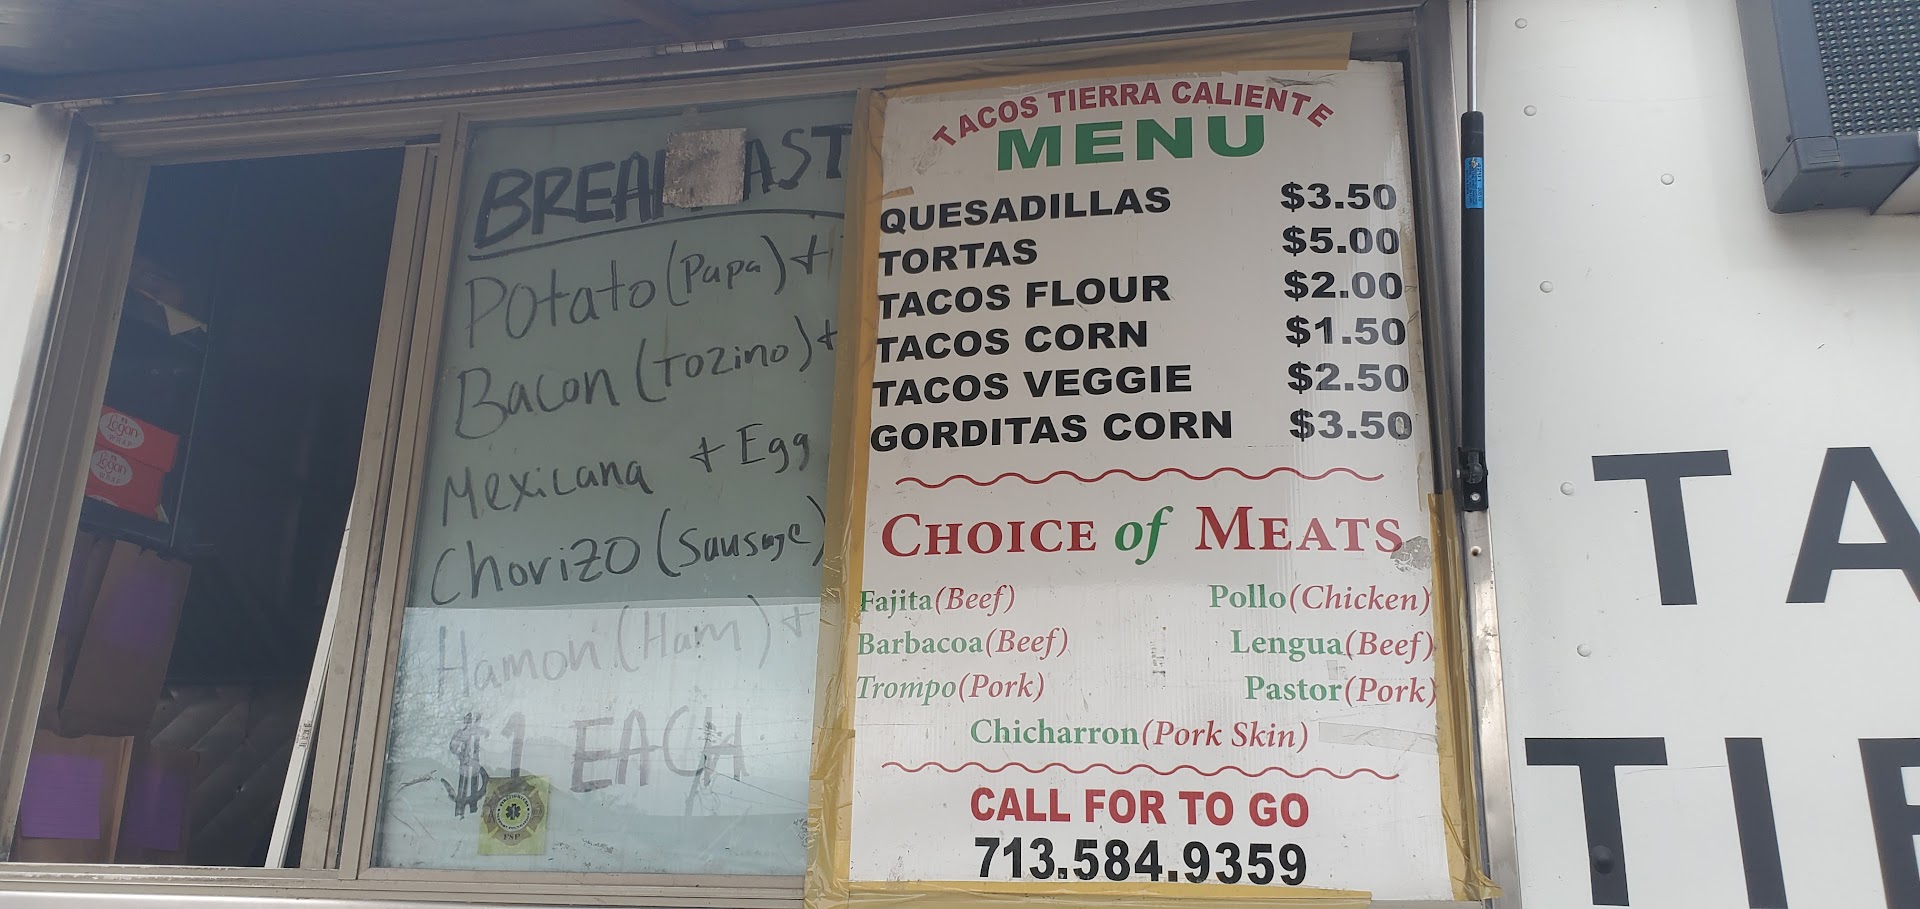 BREAKFAST
Potato (Papa) +
Bacon (Tozino) +
Mexicana + Egg
Chorizo (Sausage)
Hamon (Ham) +
$1 EACH
TACOS TIERRA CALIENTE
MENU
QUESADILLAS $3.50
TORTAS $5.00
TACOS FLOUR $2.00
TACOS CORN $1.50
TACOS VEGGIE $2.50
GORDITAS CORN $3.50
CHOICE of MEATS
Fajita (Beef) Pollo (Chicken)
Barbacoa (Beef) Lengua (Beef)
Trompo (Pork) Pastor (Pork)
Chicharron (Pork Skin)
CALL FOR TO GO
713.584.9359
Logan
WRAP
Logan
WRAP
FSP
TA
TIE